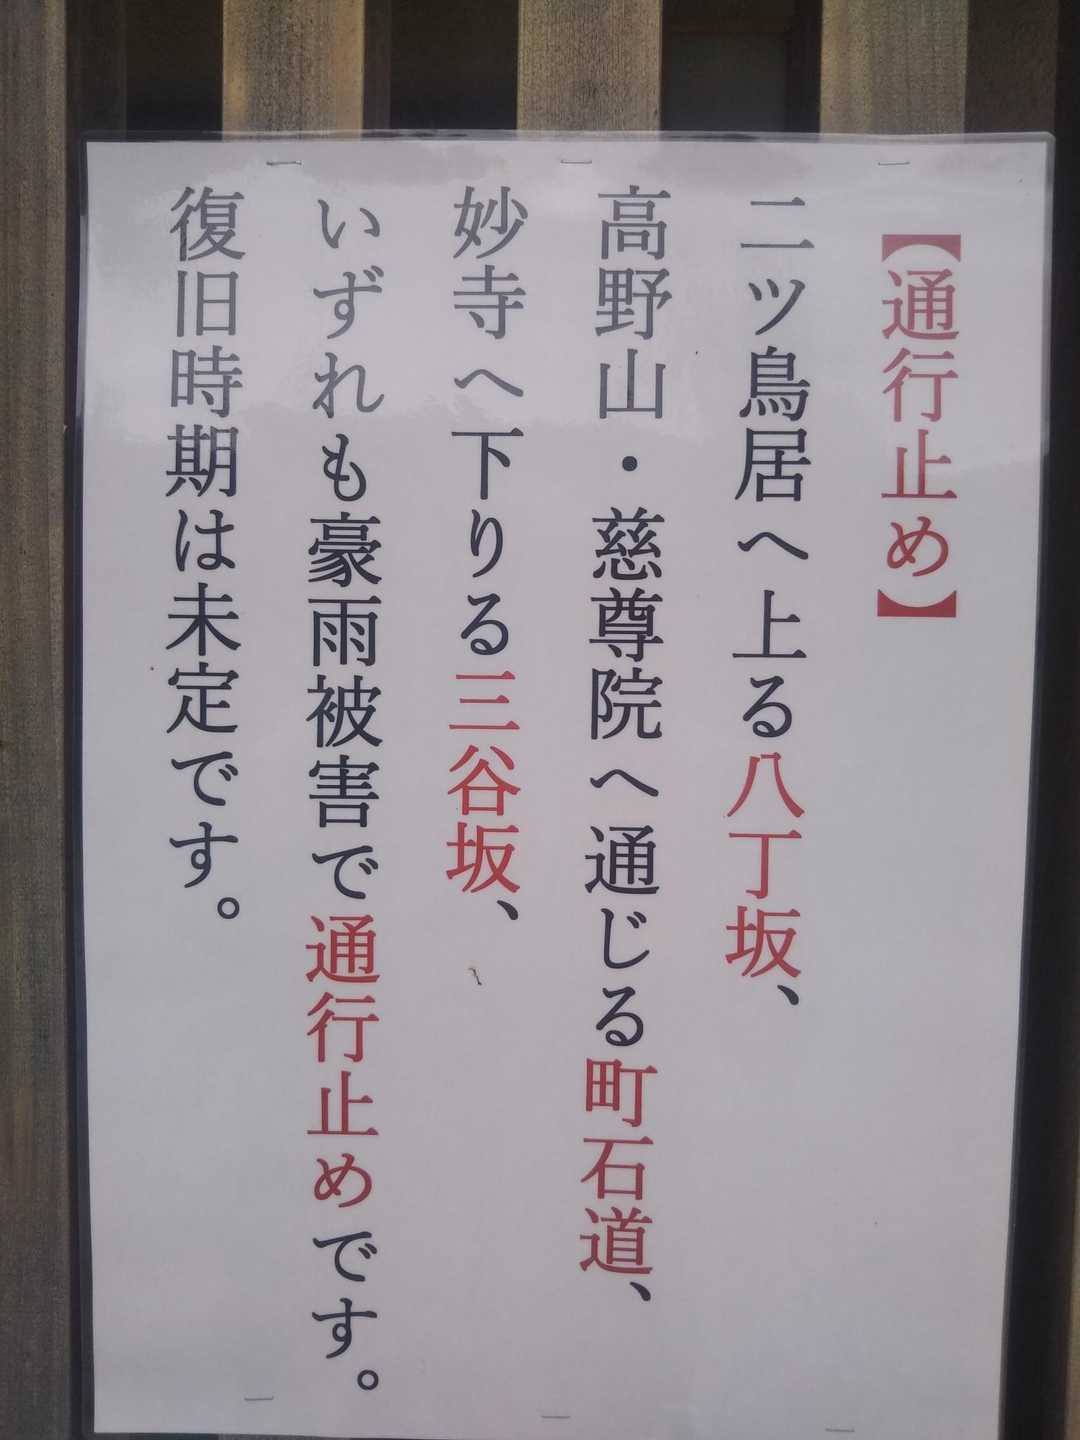 【通行止め】
二ツ鳥居へ上る八丁坂、
高野山・慈尊院へ通じる町石道、
妙寺へ下りる三谷坂、
いずれも豪雨被害で通行止めです。
復旧時期は未定です。